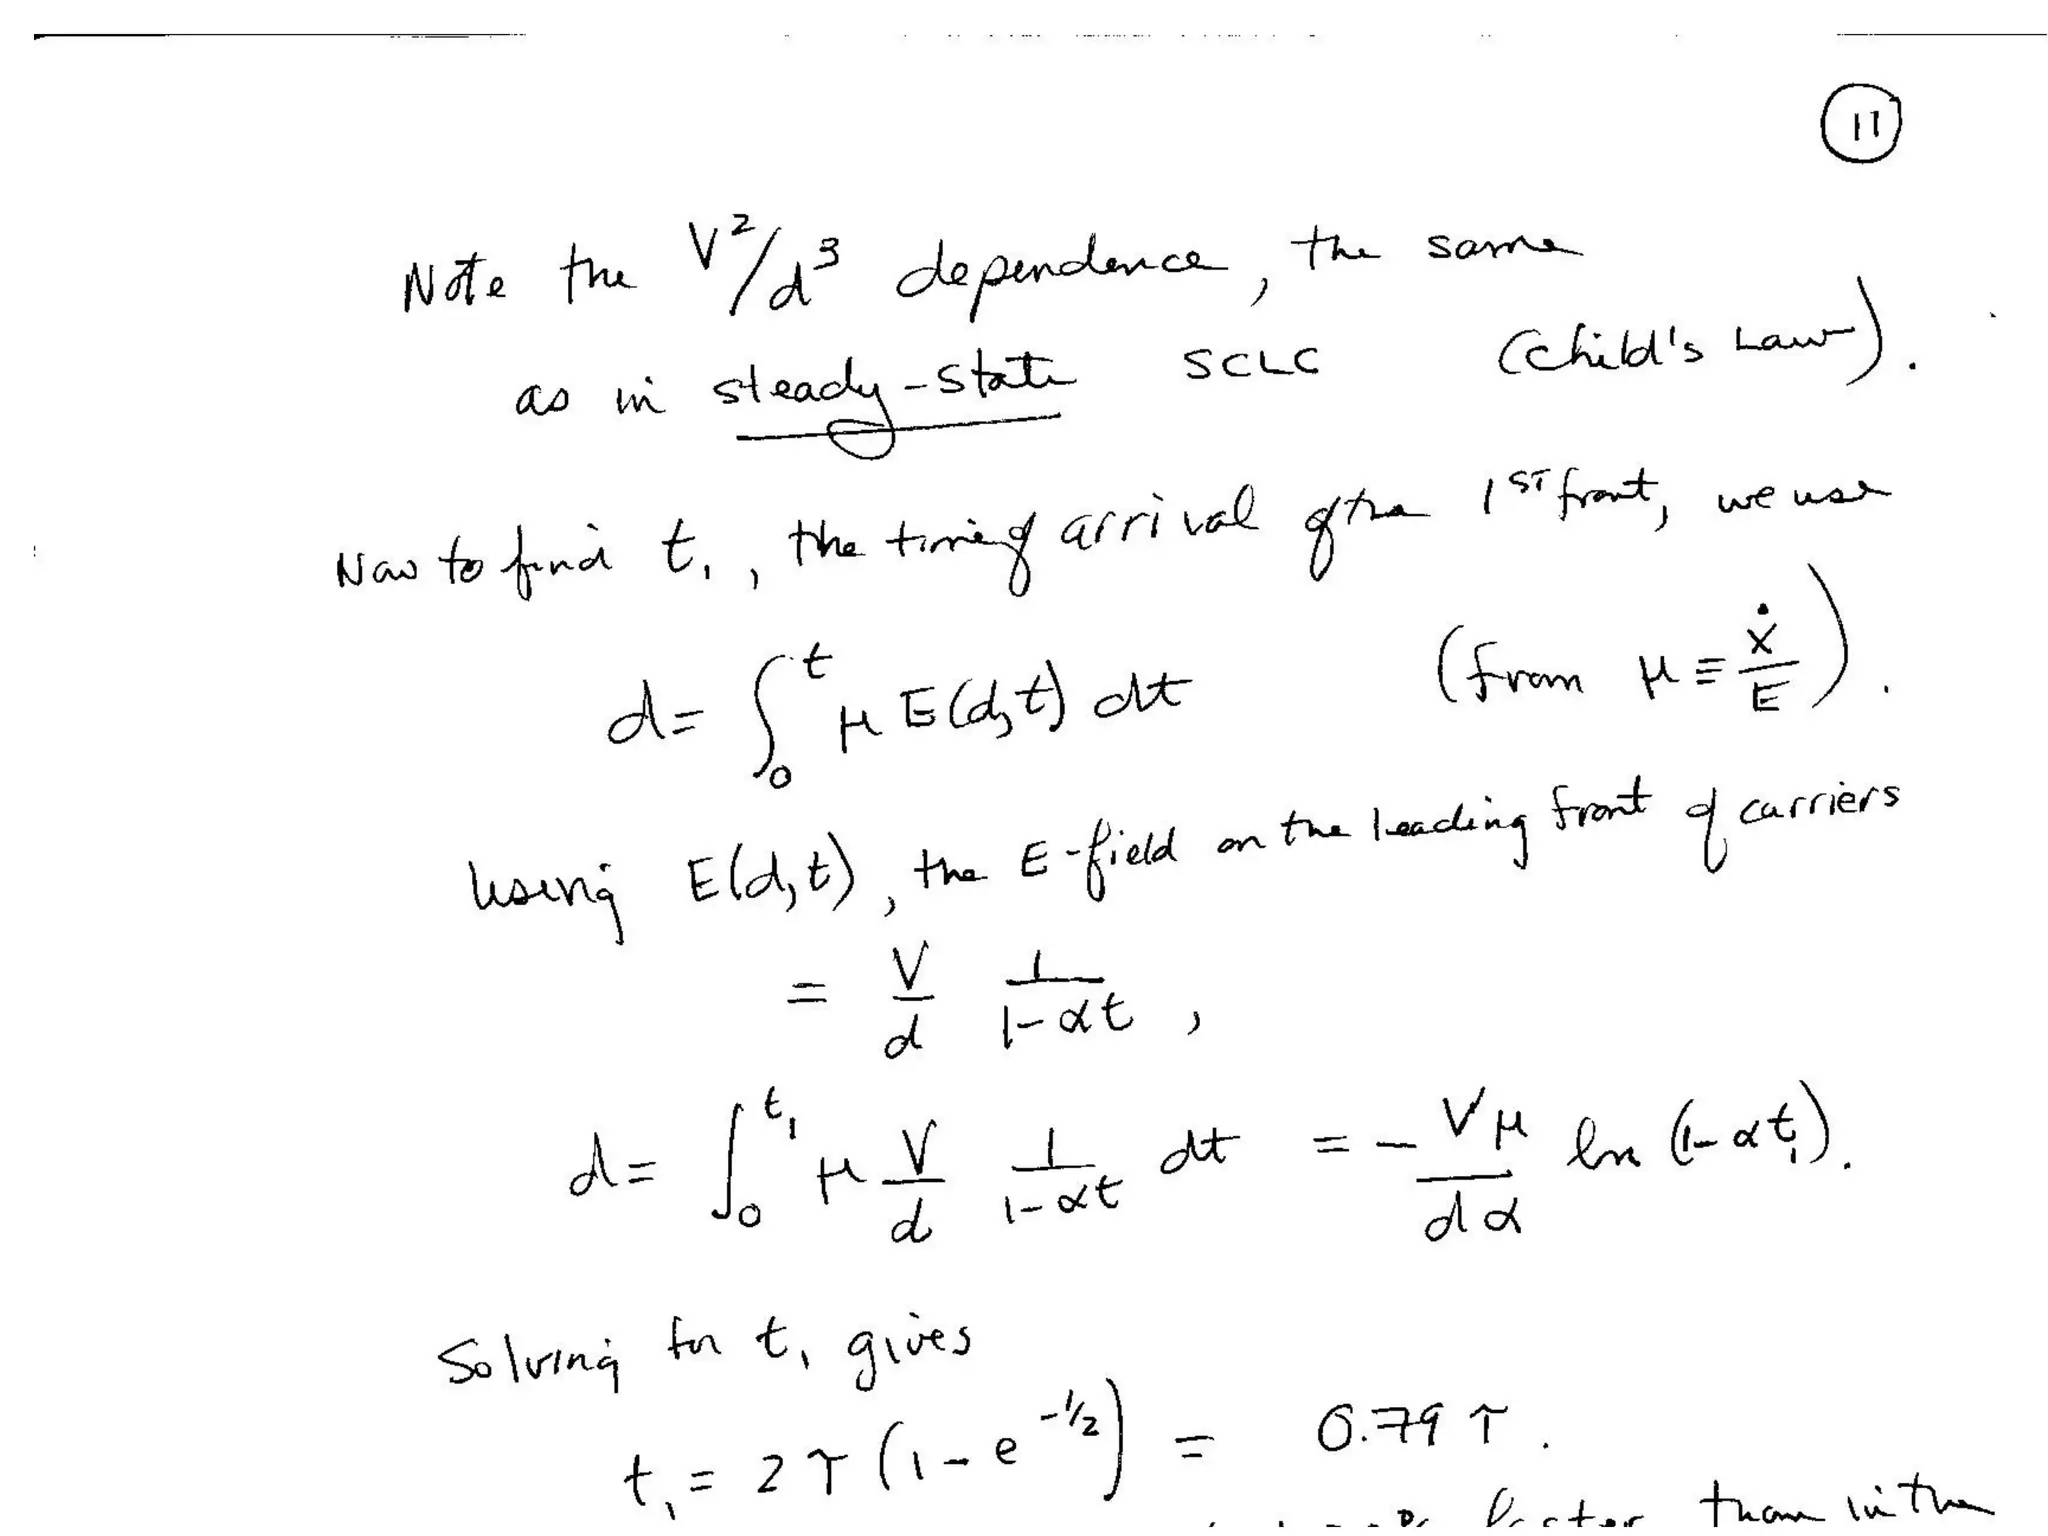 11
Note the V²/d³ dependence, the same
as in steady-state SCLC (Child's Law).
Now to find t₁, the time of arrival of the 1ST front, we use
d = ∫₀ᵗ μ E(d,t) dt (from μ ≡ ẋ/E).
using E(d,t), the E-field on the leading front of carriers
= V/d 1/(1-αt) ,
d = ∫₀^t₁ μ V/d 1/(1-αt) dt = - Vμ/dα ln (1-αt₁).
Solving for t₁ gives
t₁ = 2τ (1-e^-1/2) = 0.79 τ.
faster than in the